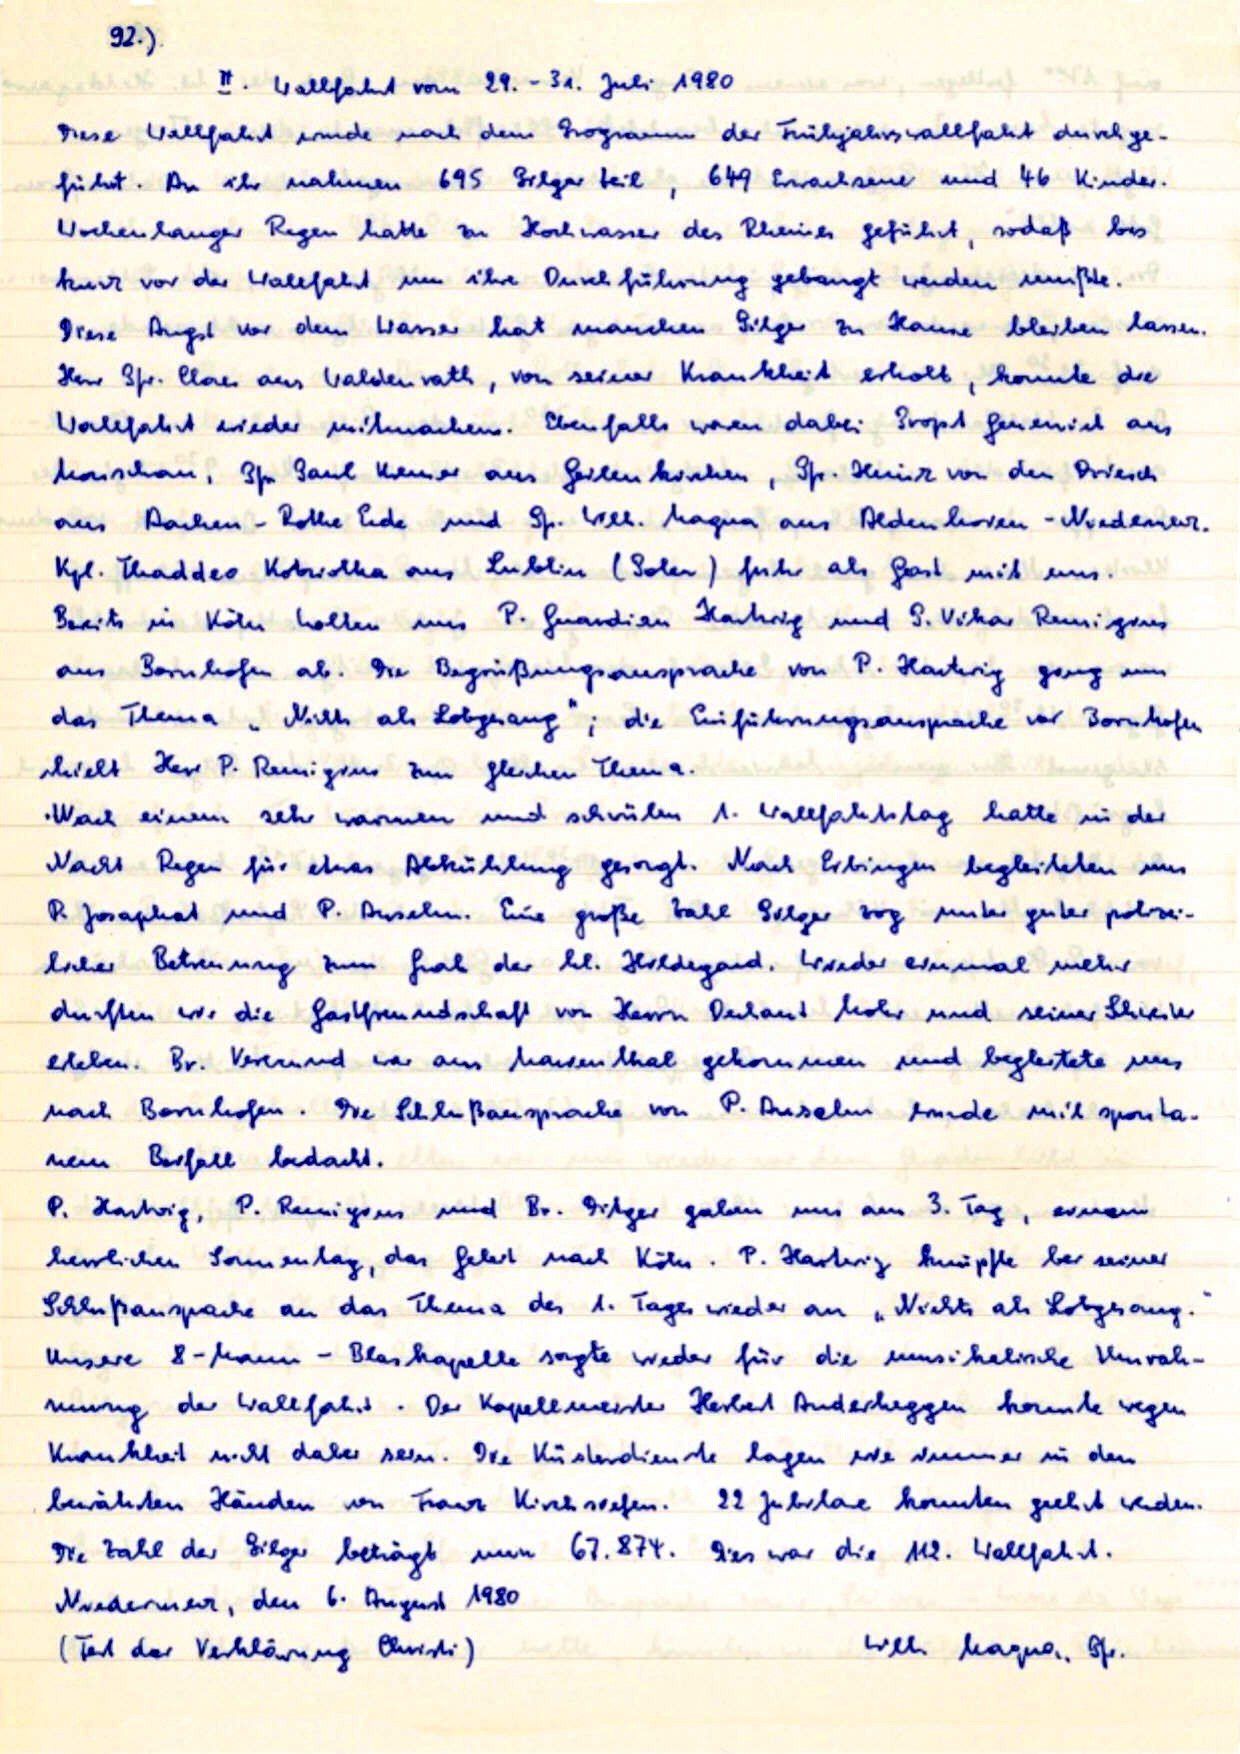 92.)
II. Wallfahrt vom 29. - 31. Juli 1980
Diese Wallfahrt wurde nach dem Programm der Frühjahrswallfahrt durchge-
führt. An ihr nahmen 695 Pilger teil, 649 Erwachsene und 46 Kinder.
Wochenlanger Regen hatte zu Hochwasser des Rheines geführt, sodaß bis
kurz vor der Wallfahrt um ihre Durchführung gebangt werden mußte.
Diese Angst vor dem Wasser hat manchen Pilger zu Hause bleiben lassen.
Herr Pfr. Claes aus Waldenrath, von seiner Krankheit erholt, konnte die
Wallfahrt wieder mitmachen. Ebenfalls waren dabei Propst Genenich aus
Monschau, Pfr. Paul Kremer aus Geilenkirchen, Pfr. Heinz von den Driesch
aus Aachen - Rothe Erde und Pfr. Will. Maqua aus Aldenhoven - Niedermerz.
Kpl. Thaddeo Kobziolka aus Lublin (Polen) fuhr als Gast mit uns.
Bereits in Köln holten uns P. Guardian Hartwig und P. Vikar Remigius
aus Bornhofen ab. Die Begrüßungsansprache von P. Hartwig ging um
das Thema „Nichts als Lobgesang"; die Einführungsansprache vor Bornhofen
hielt Herr P. Remigius zum gleichen Thema.
Nach einem sehr warmen und schwülen 1. Wallfahrtstag hatte in der
Nacht Regen für etwas Abkühlung gesorgt. Nach Eibingen begleiteten uns
P. Josaphat und P. Anselm. Eine große Zahl Pilger zog unter guter polizei-
licher Betreuung zum Grab der hl. Hildegard. Wieder einmal mehr
durften wir die Gastfreundschaft von Herrn Dechant Mohr und seiner Schwester
erleben. Br. Verekund war aus Marienthal gekommen und begleitete uns
nach Bornhofen. Die Schlußansprache von P. Anselm wurde mit sponta-
nem Beifall bedacht.
P. Hartwig, P. Remigius und Br. Ditger gaben uns am 3. Tag, einem
herrlichen Sonnentag, das Geleit nach Köln. P. Hartwig knüpfte bei seiner
Schlußansprache an das Thema des 1. Tages wieder an „Nichts als Lobgesang."
Unsere 8-Mann-Blaskapelle sorgte wieder für die musikalische Umrah-
mung der Wallfahrt. Der Kapellmeister Herbert Anderheggen konnte wegen
Krankheit nicht dabei sein. Die Küsterdienste lagen wie immer in den
bewährten Händen von Franz Kirchsiefen. 22 Jubilare konnten geehrt werden.
Die Zahl der Pilger beträgt nun 67.874. Dies war die 112. Wallfahrt.
Niedermerz, den 6. August 1980
(Fest der Verklärung Christi) Willi Maqua, Pfr.